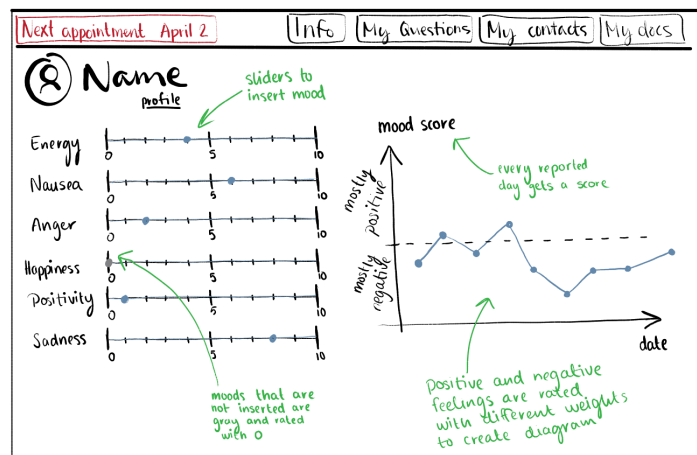 Next appointment April 2
Info
My Questions
My contacts
My docs
Name
profile
sliders to
insert mood
Energy
0 5 10
Nausea
0 5 10
Anger
0 5 10
Happiness
0 5 10
Positivity
0 5 10
Sadness
0 5 10
moods that are
not inserted are
gray and rated
with 0
mood score
every reported
day gets a score
mostly
positive
mostly
negative
date
positive and negative
feelings are rated
with different weights
to create diagram